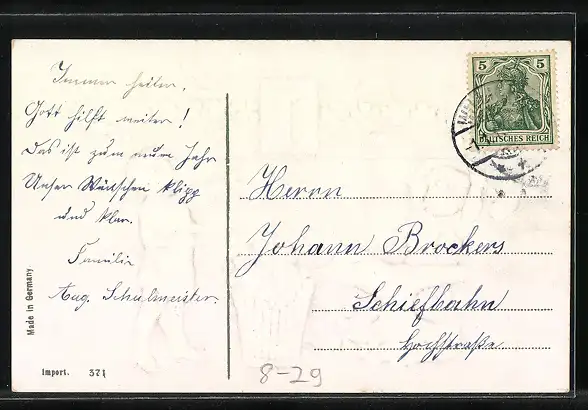 Immer heiter,
Gott hilft weiter!
Das ist zum neuen Jahr
Unser Wünschen klipp
und klar.
Familie
Aug. Schulmeister.
Made in Germany
Import. 371
5 5
DEUTSCHES REICH
Herrn
Johann Brockers
Schiefbahn
Hochstraße
8-29